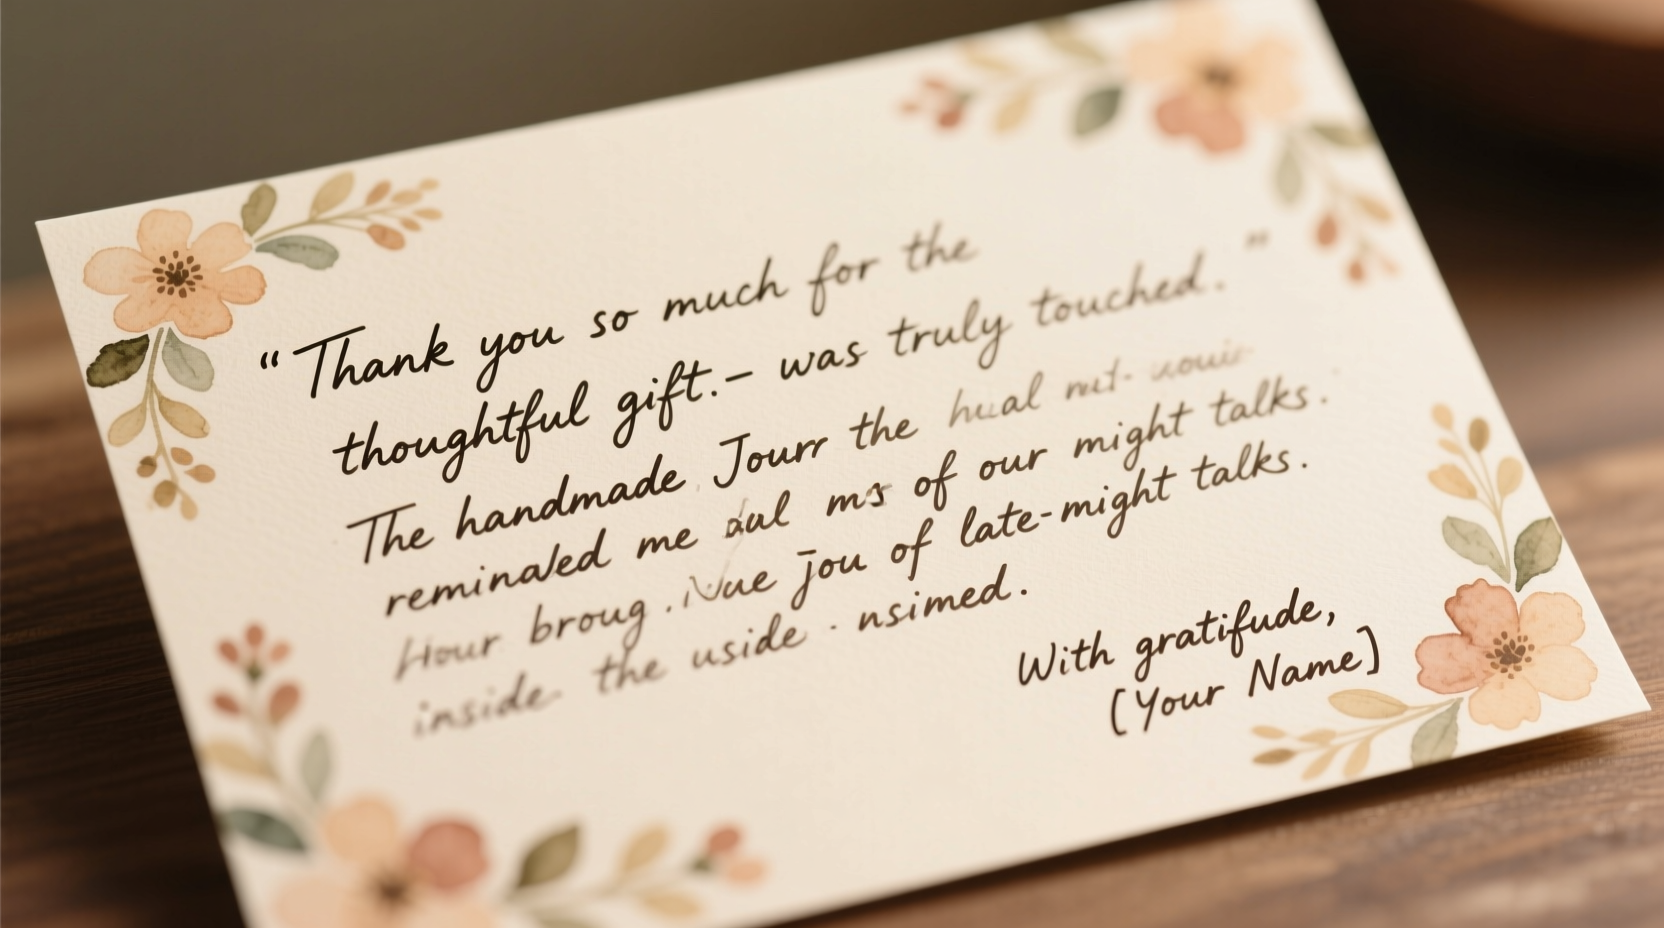 “Thank you so much for the
thoughtful gift.– was truly touched.”
The handmade Jourr the
reminaled me of our might talks.
Hour broug. jou of late-might talks.
inside the uside. nsimed.
With gratifude,
[Your Name]